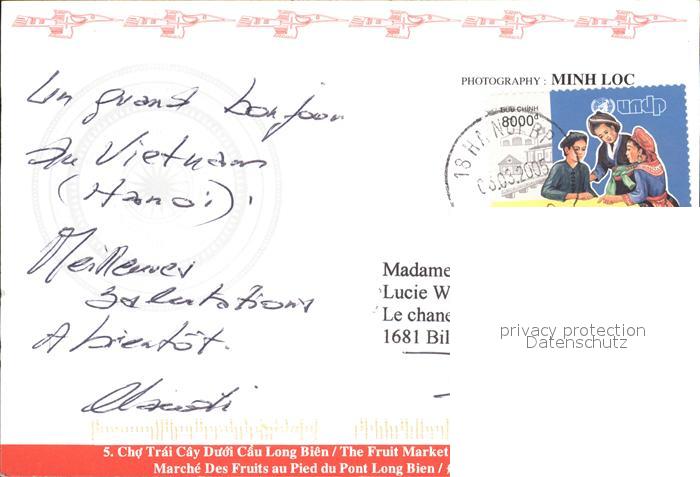 PHOTOGRAPHY : MINH LOC
BƯU CHÍNH
8000đ
undp
18 HANOI RP
03.03.2005
Un grand bonjour
du Vietnam
(Hanoi).
Meilleures
Salutations
A bientôt.
Madame
Lucie W
Le chane
1681 Bil
privacy protection
Datenschutz
5. Chợ Trái Cây Dưới Cầu Long Biên / The Fruit Market
Marché Des Fruits au Pied du Pont Long Bien /